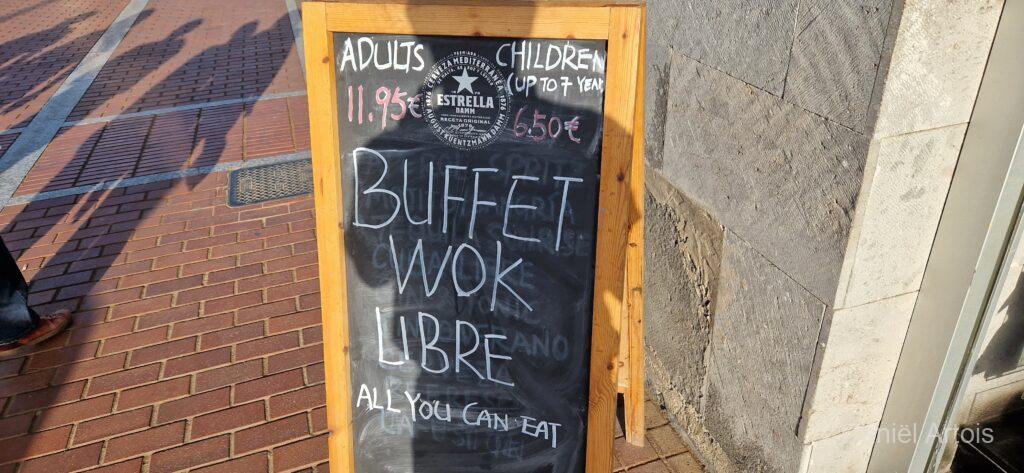 ADULTS
CHILDREN
(UP TO 7 YEAR
11.95€
6.50€
CERVEZA MEDITERRÁNEA
ESTRELLA
DAMM
RECETA ORIGINAL
1876
1876
AUGUST KUENTZMANN DAMM
BUFFET
WOK
LIBRE
ALL YOU CAN EAT
niël Artois